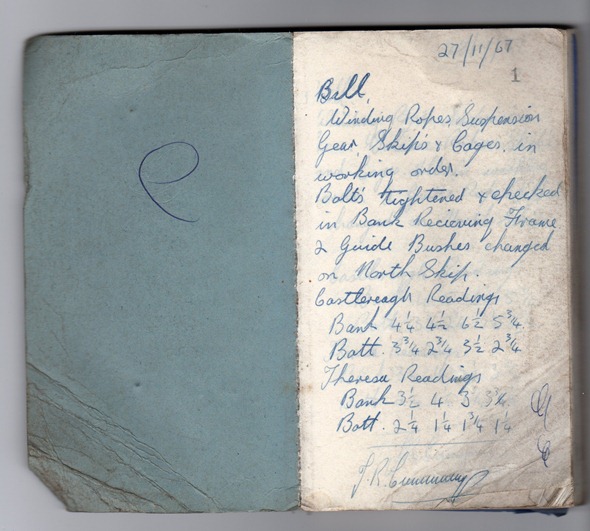 27/11/67
1
Bill,
Winding Ropes, Suspension
Gear, Skip's & Cages, in
working order.
Bolt's tightened & checked
in Bank Recieving Frame
2 Guide Bushes changed
on North Skip.
Castlereagh Readings
Bank 4¼ 4½ 6½ 5¾
Bott. 3¾ 2¾ 3½ 2¾
Theresa Readings
Bank 3½ 4 3 3¼
Bott. 2¼ 1¼ 1¾ 1¼